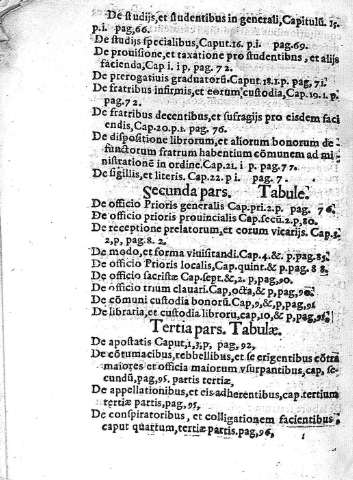 De studijs, et studentibus in generali, Capitulū. 15.
p.i. pag, 66.
De studijs specialibus, Caput. 16. p.i. pag. 69.
De prouisione, et taxatione pro studentibus, et alijs
facienda, Cap i. i p. pag. 7 2.
De prerogatiuis graduatorū. Caput. 18. 1. p. pag, 71.
De fratribus infirmis, et eorum custodia, Cap. 19. i. p.
pag. 7 2.
De fratribus decentibus, et sufragijs pro eisdem faci
endis, Cap. 20. p. i. pag. 76.
De dispositione librorum, et aliorum bonorum de
functorum fratrum habenium cōmunem ad mi
nistrationē in ordine. Cap. 21. i p. pag. 7 7.
De sigillis, et literis. Cap. 22. p i. pag. 7.
Secunda pars. Tabule.
De officio Prioris generalis Cap. pri. 2. p. pag. 7 6.
De officio prioris prouincialis Cap. secū. 2. p, 80.
De receptione prelatorum, et eorum vicarijs. Cap. 3.
2, p, pag. 8. 2.
De modo, et forma viuisitandi. Cap. 4. &. p. pag. 85.
De officio Prioris localis, Cap. quint. & p. pag. 8 8
De officio sacristæ Cap. sept. &, 2. p, pag, 90.
De officio trium clauari. Cap, octa, & p, pag, 90.
De cōmuni custodia bonorū. Cap, 9, &, p, pag, 91
De libraria, et custodia libroru, cap, 10, & p, pag, 91.
Tertia pars. Tabulæ.
De apostatis Caput, 1, 3, p, pag, 92,
De cōtumacibus, rebbellibus, et se erigentibus cōtra
maiores et officia maiorum vsurpantibus, cap, se-
cundū, pag, 95. partis tertiæ,
De appellationibus, et eis adherentibus, cap. tertium
tertiæ partis, pag. 95,
De conspiratoribus, et colligationem facientibus
caput quartum, tertiæ partis. pag, 96,